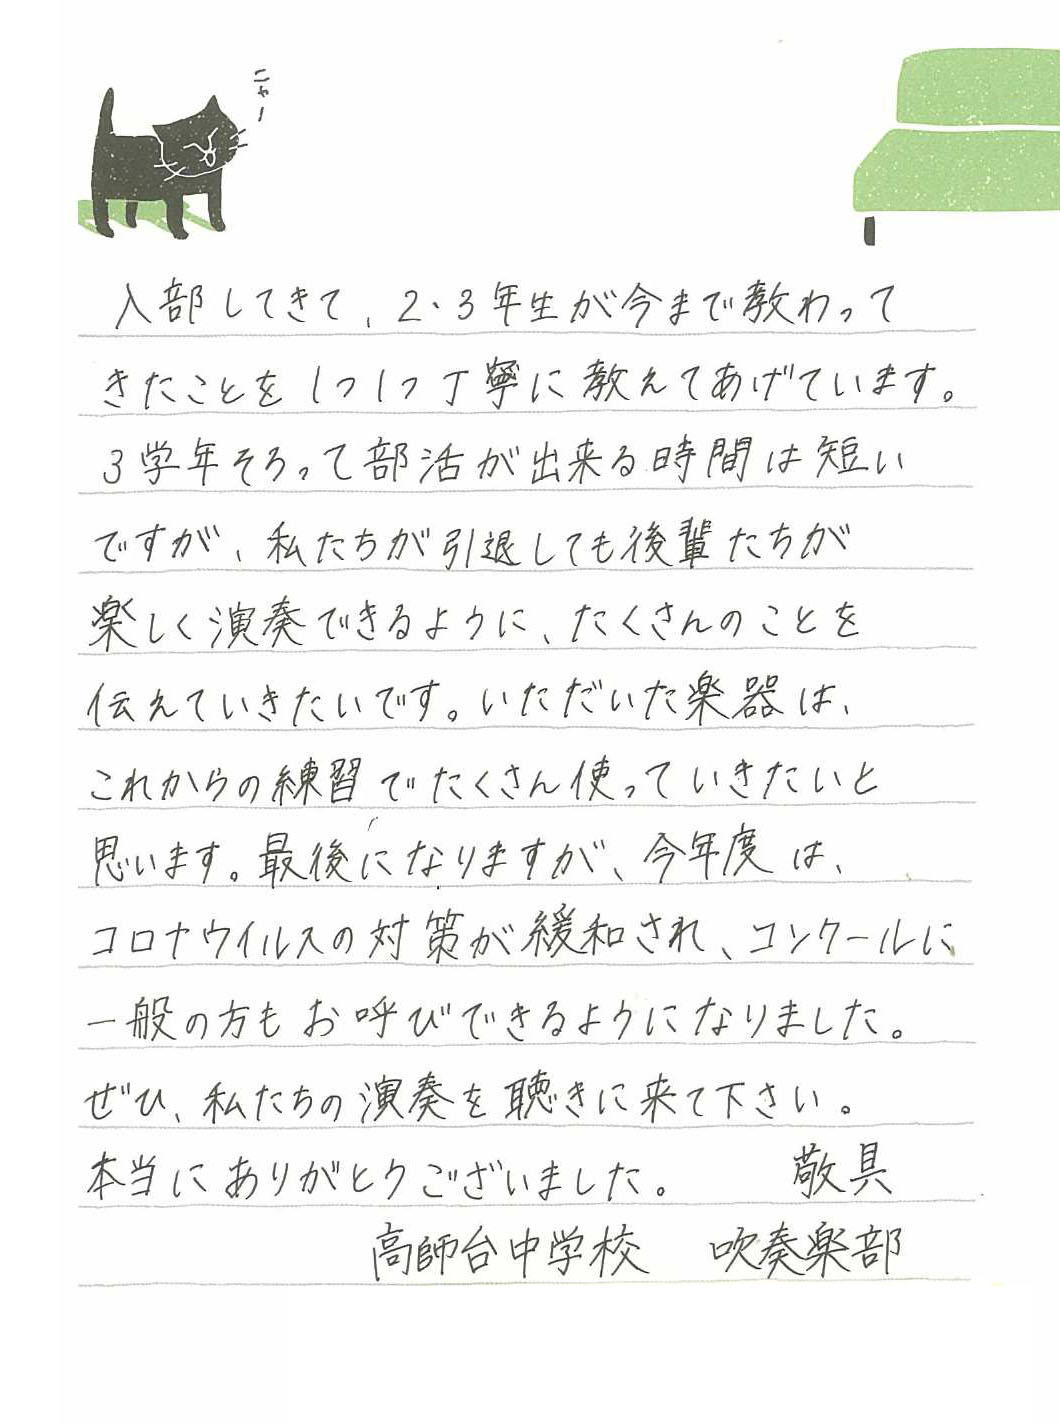 ニャー
入部してきて、2・3年生が今まで教わって
きたことを1つ1つ丁寧に教えてあげています。
3学年そろって部活が出来る時間は短い
ですが、私たちが引退しても後輩たちが
楽しく演奏できるように、たくさんのことを
伝えていきたいです。いただいた楽器は、
これからの練習でたくさん使っていきたいと
思います。最後になりますが、今年度は、
コロナウイルスの対策が緩和され、コンクールに
一般の方もお呼びできるようになりました。
ぜひ、私たちの演奏を聴きに来て下さい。
本当にありがとうございました。 敬具
高師台中学校 吹奏楽部